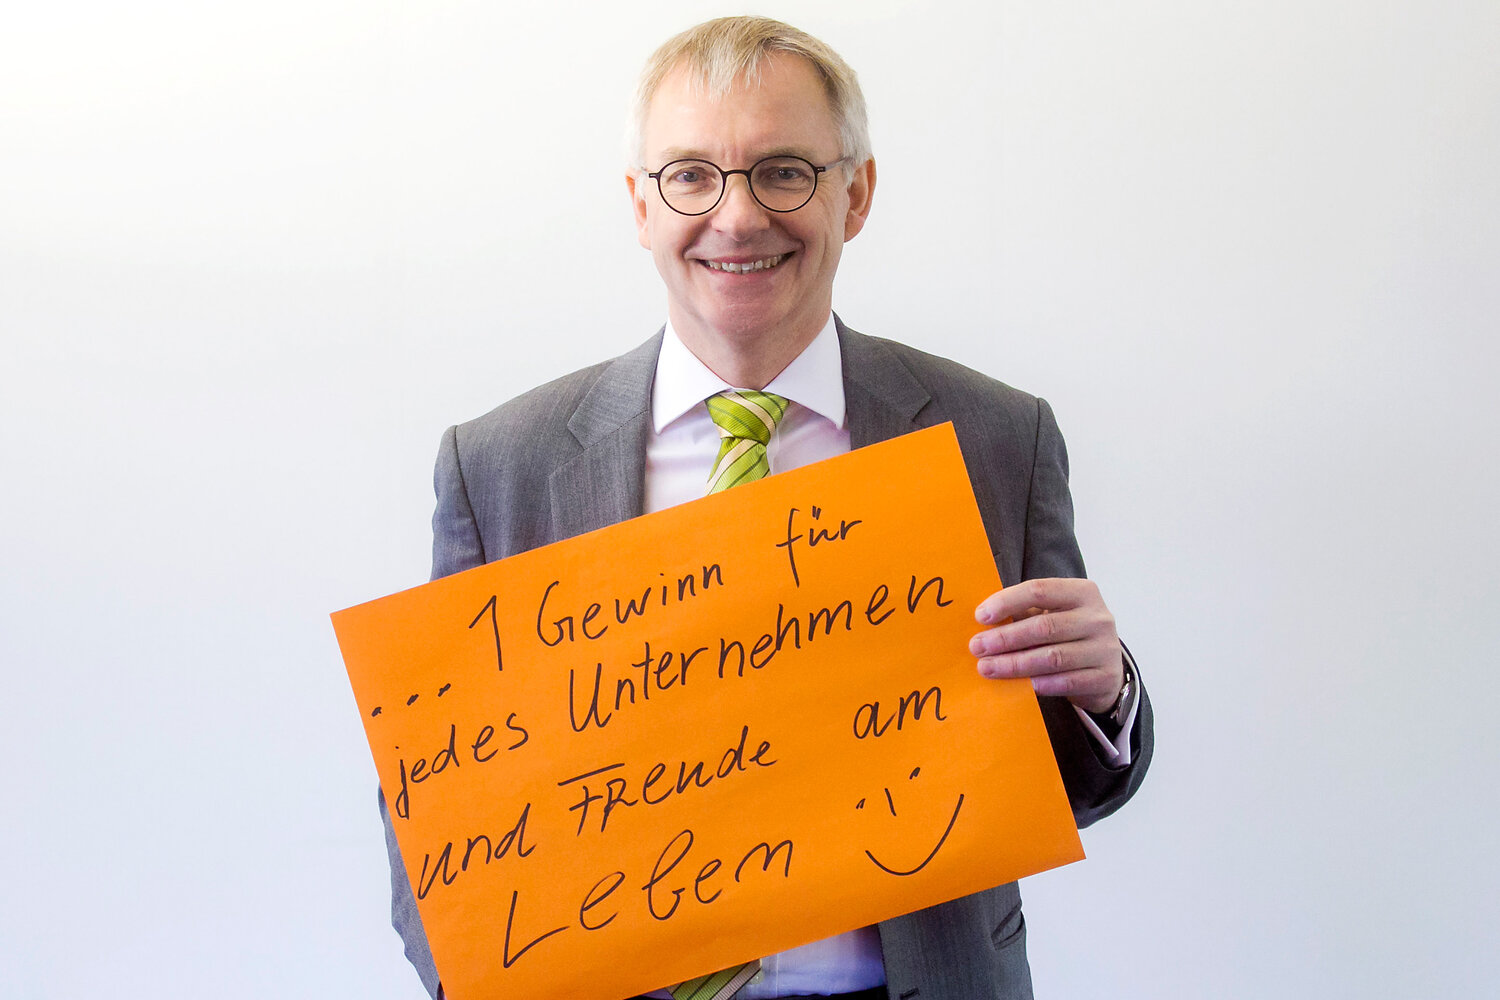 ... 1 Gewinn für
jedes Unternehmen
und FReude am
Leben